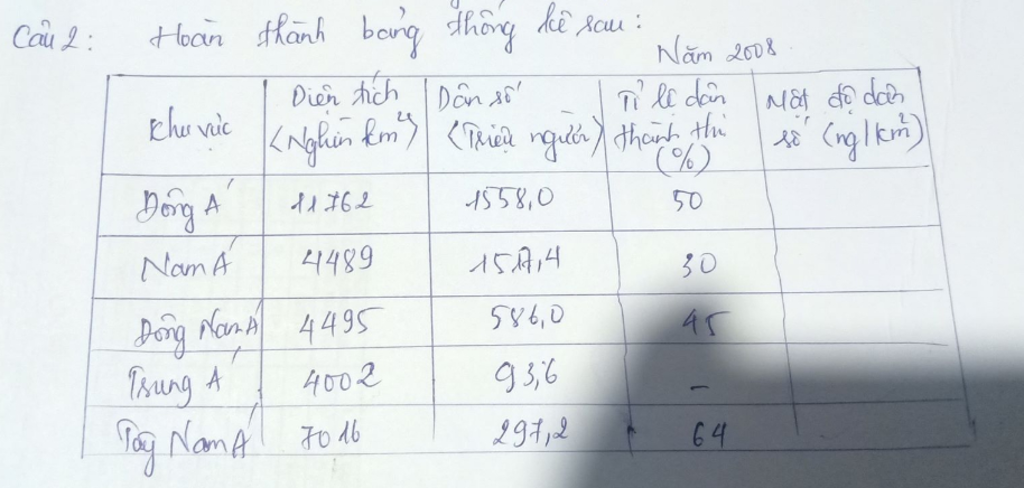 Câu 2: Hoàn thành bảng thống kê sau:
Năm 2008
Khu vực | Diện tích (Nghìn km²) | Dân số (Triệu người) | Tỉ lệ dân thành thị (%) | Mật độ dân số (ng/km²)
Đông Á | 11762 | 1558,0 | 50
Nam Á | 4489 | 1517,4 | 30
Đông Nam Á | 4495 | 586,0 | 45
Trung Á | 4002 | 93,6 | -
Tây Nam Á | 7016 | 297,2 | 64